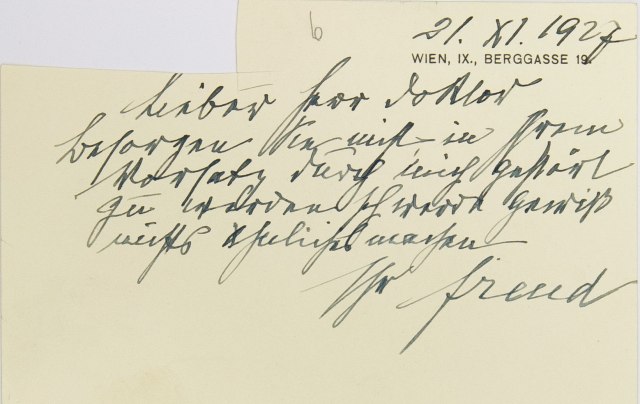 6
21. XI. 1927
WIEN, IX., BERGGASSE 19.
Lieber Herr Doktor
Besorgen Sie nicht in Ihrem
Vorsatz durch mich gestört
zu werden Ich werde gewiß
nichts Ähnliches machen
Ihr Freud